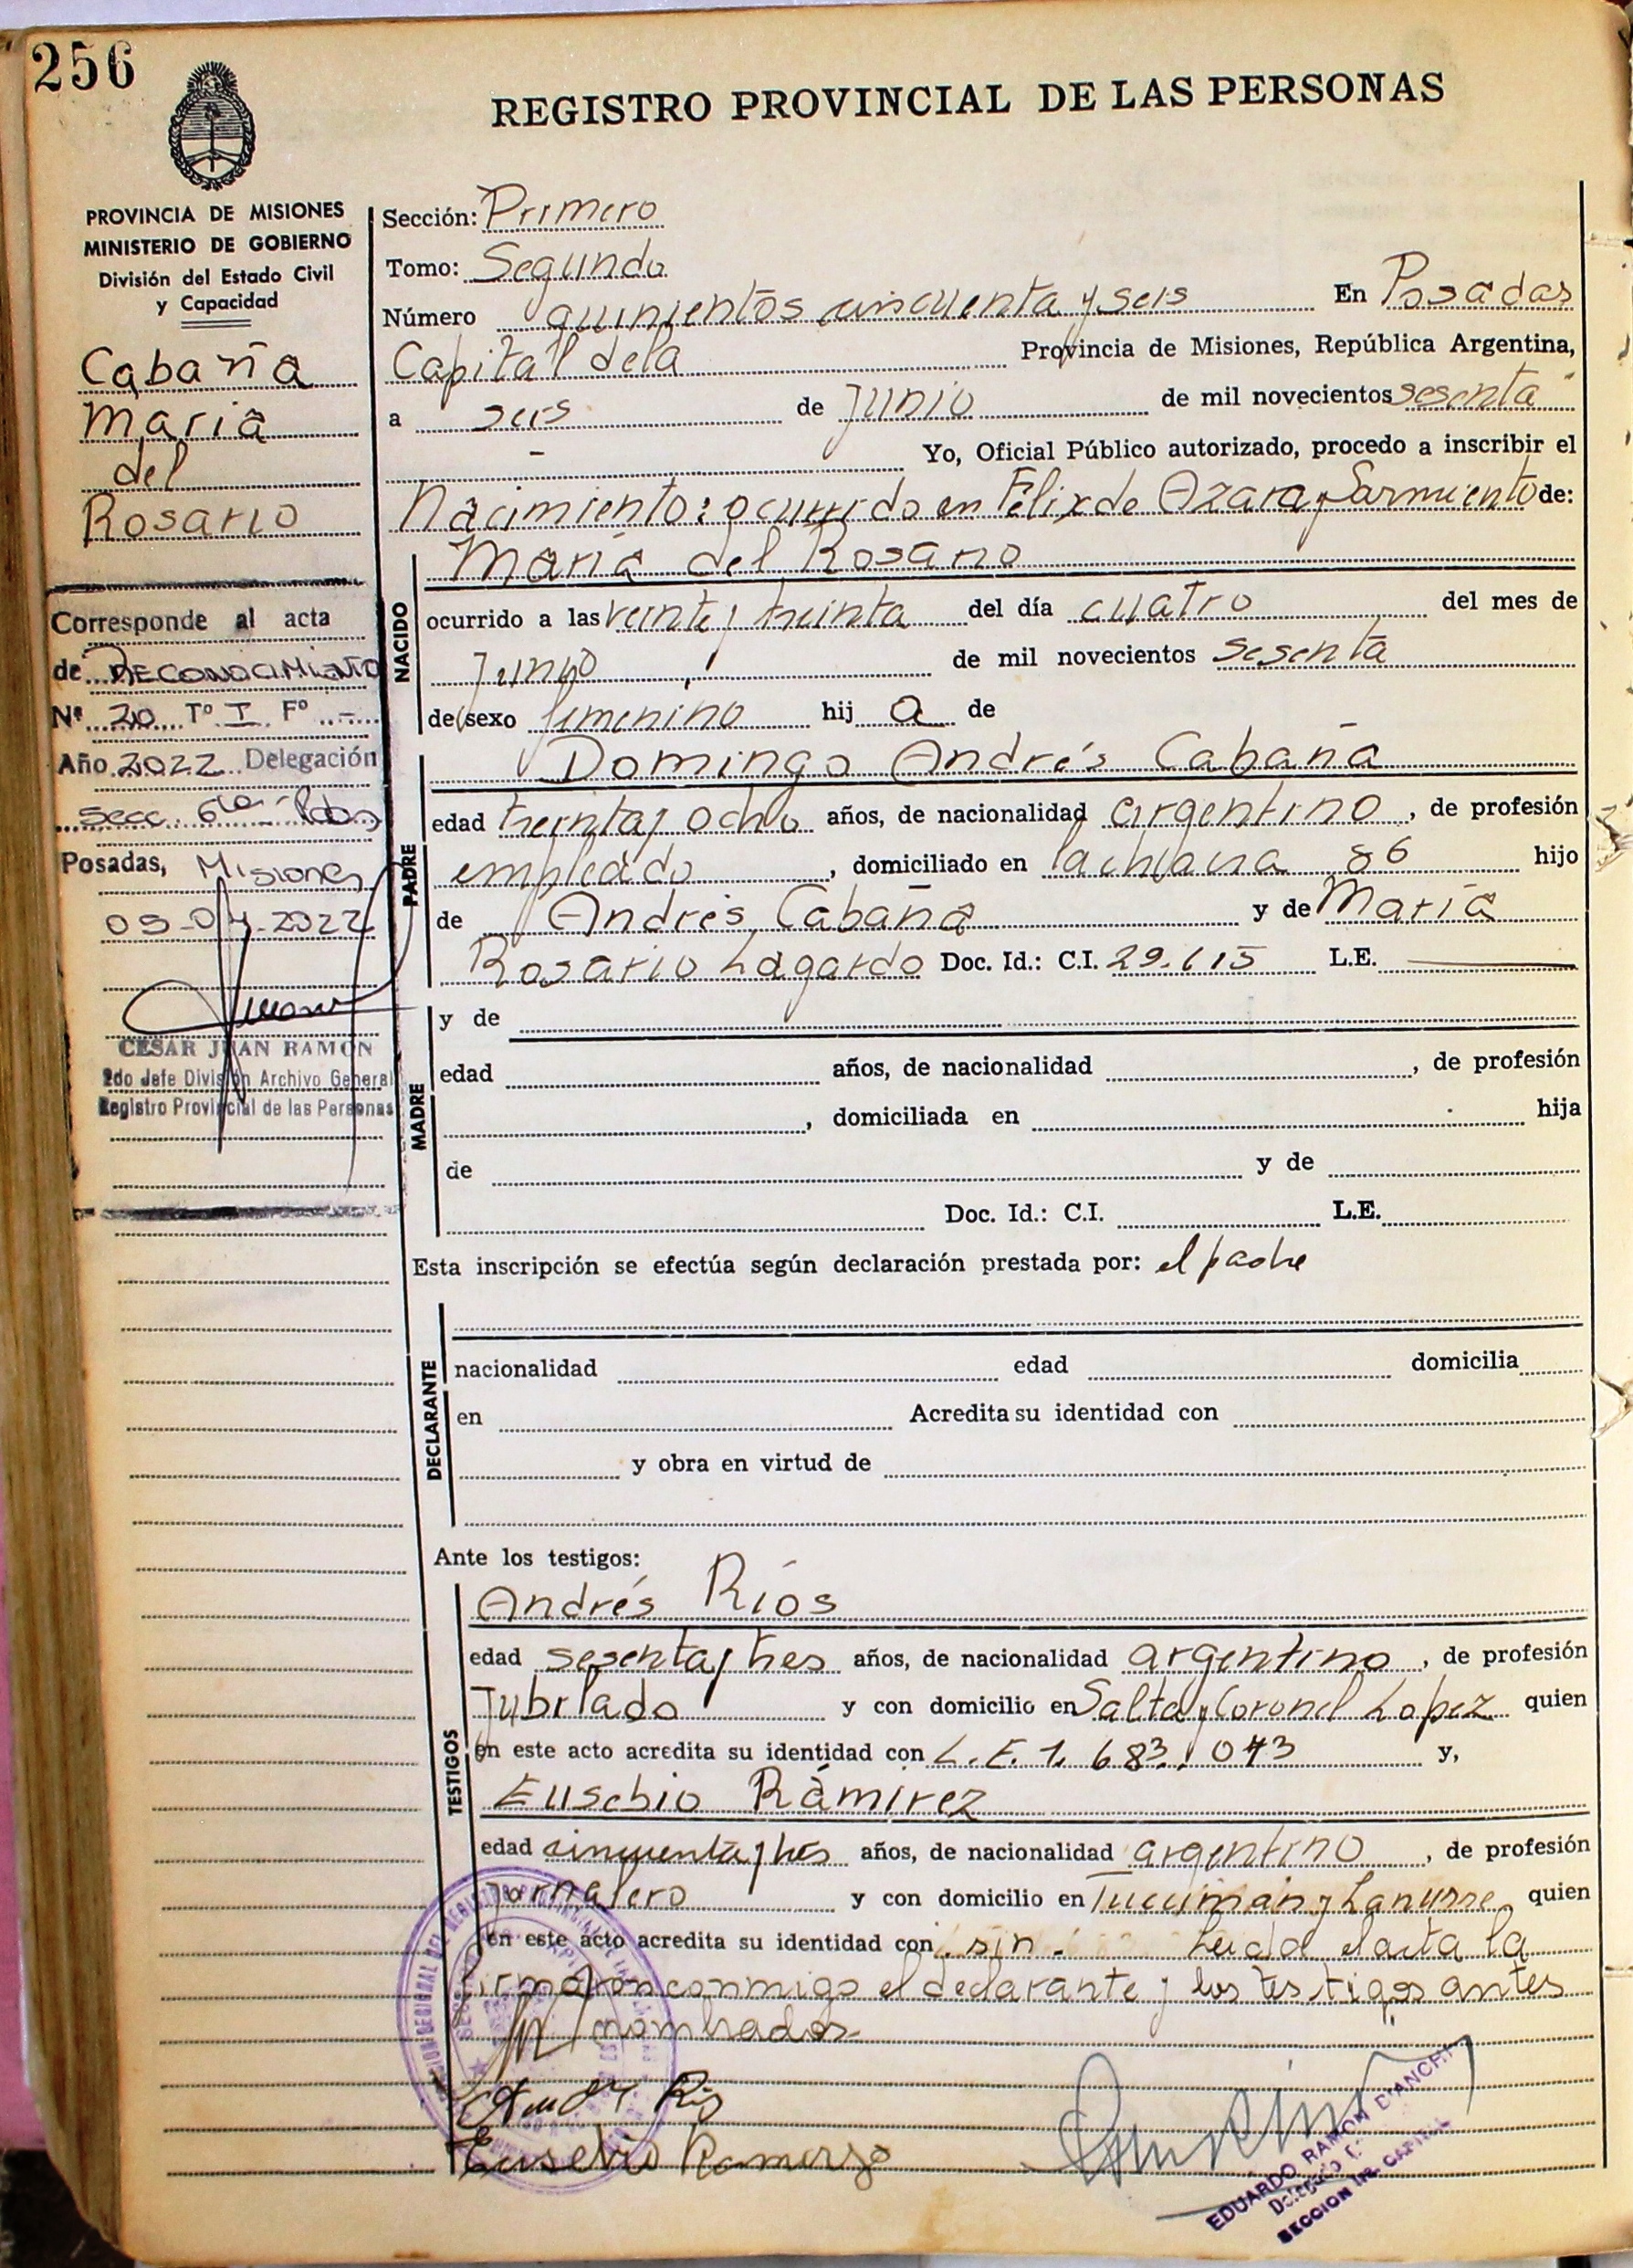 256
REGISTRO PROVINCIAL DE LAS PERSONAS
PROVINCIA DE MISIONES
MINISTERIO DE GOBIERNO
División del Estado Civil
y Capacidad
Cabaña
María
del
Rosario
Corresponde al acta
de RECONOCIMIENTO
Nº 20 Tº I Fº -
Año 2022 Delegación
Secc. 6ta - Pdas
Posadas, Misiones
2022
CESAR JUAN RAMON
2do Jefe División Archivo General
Registro Provincial de las Personas
Sección: Primero
Tomo: Segundo
Número quinientos cincuenta y seis En Posadas
Capital de la Provincia de Misiones, República Argentina,
a seis de Junio de mil novecientos sesenta
- Yo, Oficial Público autorizado, procedo a inscribir el
Nacimiento: ocurrido en Félix de Azara y Sarmiento de:
NACIDO
María del Rosario
ocurrido a las veinte y treinta del día cuatro del mes de
Junio de mil novecientos sesenta
de sexo femenino hij a de
PADRE
Domingo Andrés Cabaña
edad treinta y ocho años, de nacionalidad argentino, de profesión
empleado, domiciliado en 86 hijo
de Andrés Cabaña y de María
Rosario Doc. Id.: C.I. 29.615 L.E.
MADRE
y de
edad años, de nacionalidad , de profesión
, domiciliada en hija
de y de
Doc. Id.: C.I. L.E.
Esta inscripción se efectúa según declaración prestada por: el padre
DECLARANTE
nacionalidad edad domicilia
en Acredita su identidad con
y obra en virtud de
Ante los testigos:
TESTIGOS
Andrés Ríos
edad sesenta y tres años, de nacionalidad argentino, de profesión
Jubilado y con domicilio en Salta y Coronel Lopez quien
en este acto acredita su identidad con L.E. 1.683.043 y,
Eusebio Ramirez
edad cinquenta y tres años, de nacionalidad argentino, de profesión
Jornalero y con domicilio en Tucumán y Lanusse quien
en este acto acredita su identidad con sin. Leida el acta la
firmaron conmigo el declarante y los testigos antes
nombrados-
Eusebio Ramirez
EDUARDO RAMON D'ANCHI
SECCION 1ra. CAPITAL